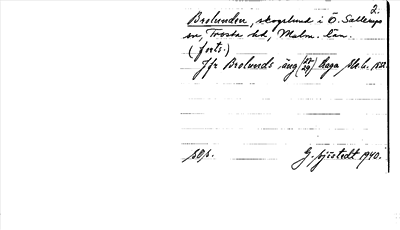 2.
Brolunden, skogslund i Ö. Sallerups
sn, Frosta hd, Malm. län.
(forts.)
Jfr Brolunds äng Laga Sk. 1832
G. Sjöstedt 1940.